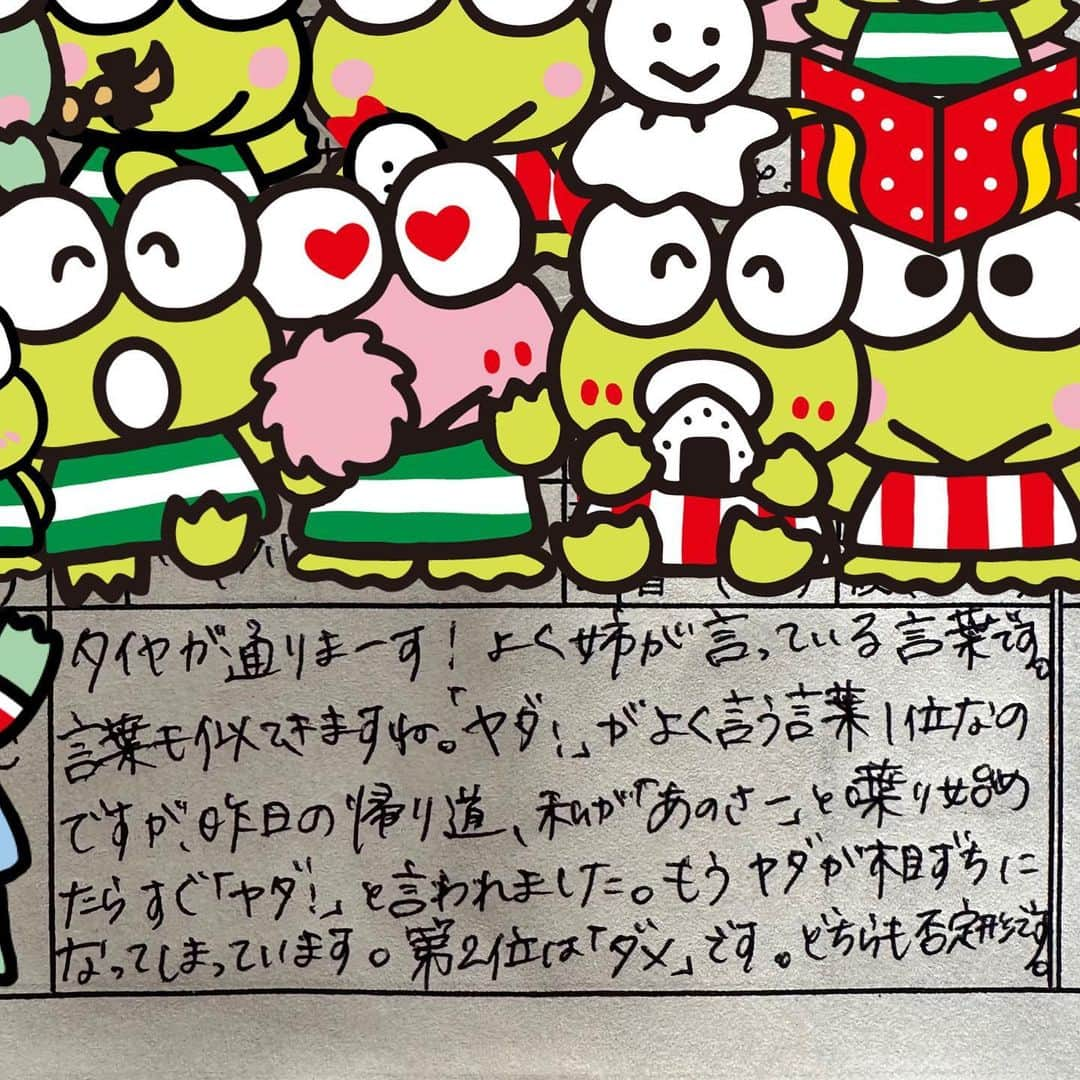 タイヤが通りまーす！よく姉が言っている言葉です。
言葉も似てきますね。「ヤダ！」がよく言う言葉1位なの
ですが、昨日の帰り道、私が「あのさー」と喋り始め
たらすぐ「ヤダ！」と言われました。もうヤダが相ずちに
なってしまっています。第2位は「ダメ」です。どちらも否定形です。